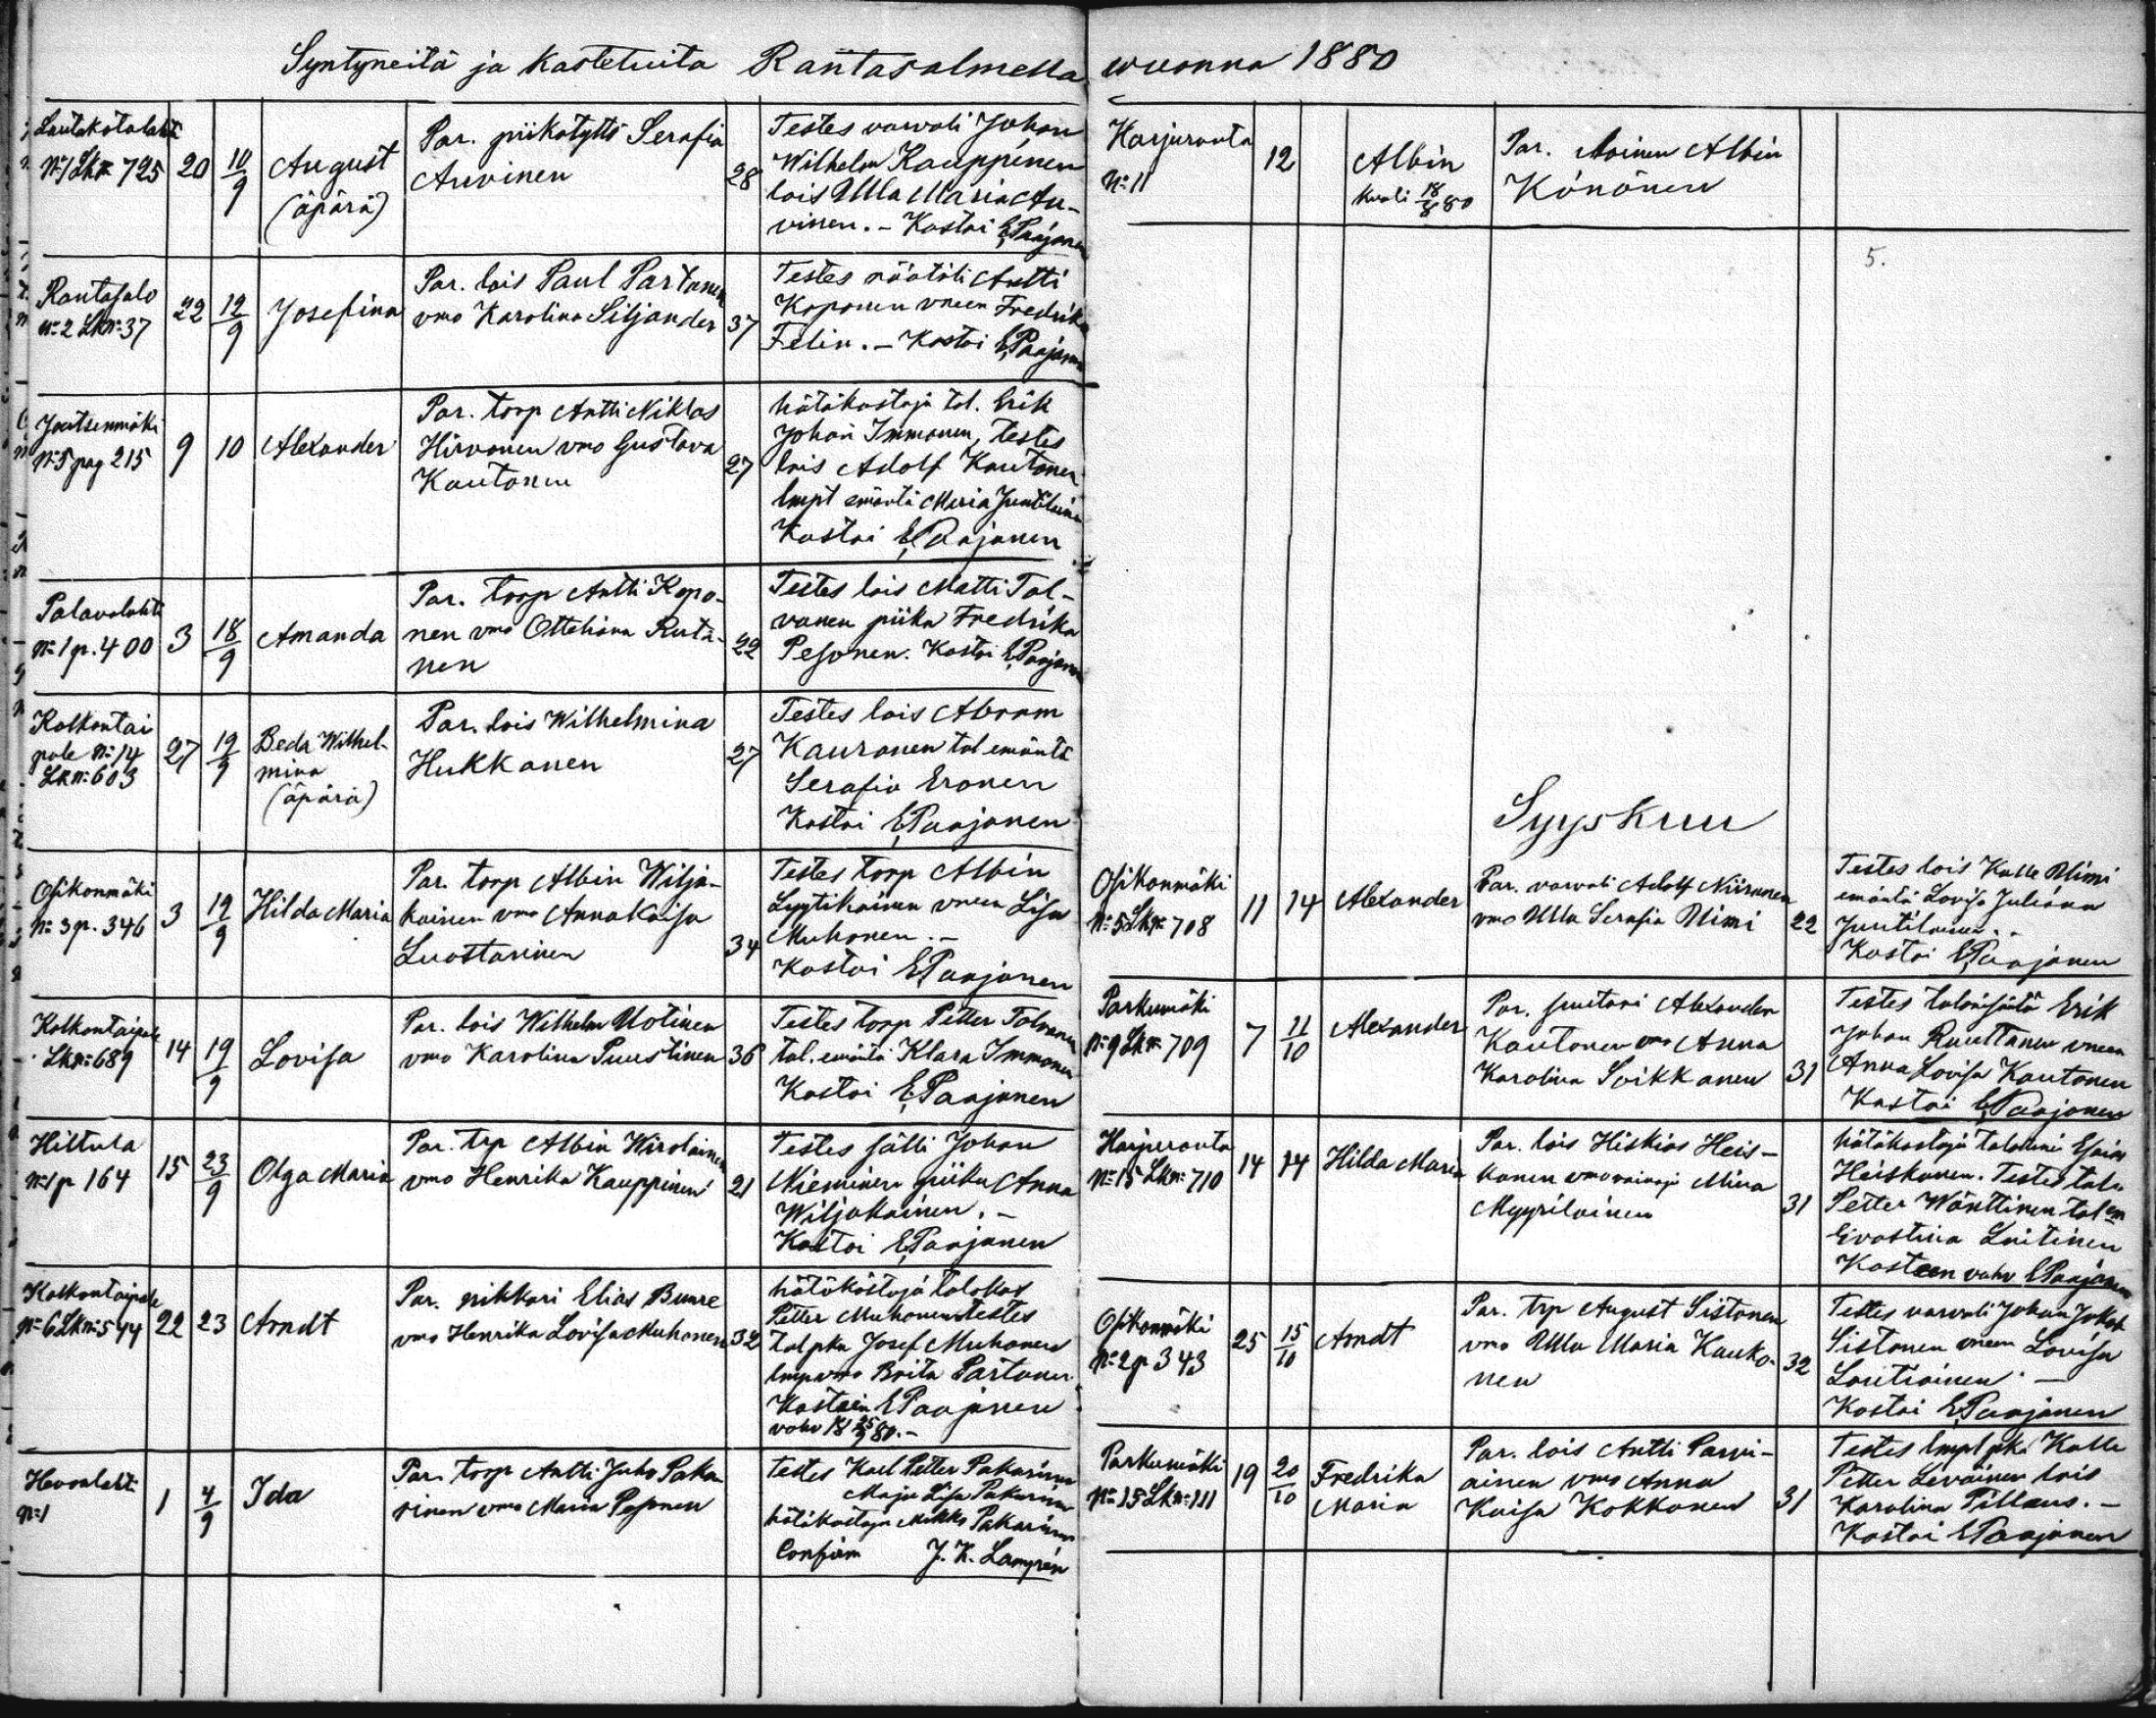 Syntyneitä ja kastetuita Rantasalmella wuonna 1880
Lautakotalahti
N:1 Lk n: 725 20 10/9 August
(äpärä)
Par. piikatyttö Serafia
Auvinen 28
Testes vavoli Johan
Wilhelm Kauppinen
lois Ulla Maria Au-
vinen. - Kastoi E Paajanen
Rantasalo
n: 2 Lk n: 37 22 12/9 Josefina
Par. lois Paul Partanen
vmo Karolina Siljander 37
Testes räätäli Antti
Koponen vneen Fredrika
Felin. - Kastoi E Paajanen
Joutsenmäki
N:5 pag 215 9 10 Alexander
Par. torp Antti Niklas
Hirvonen vmo Gustava
Kautonen 27
hätäkastaja tal. Erik
Johan Immonen, testes
lois Adolf Kautonen
Impt emäntä Maria Juutilainen
Kastoi E Paajanen
Palavalahti
n: 1 p. 400 3 18/9 Amanda
Par. torp Antti Kopo-
nen vmo Otteliana Rutä-
nen 22
Testes lois Matti Tol-
vanen piika Fredrika
Pesonen. Kastoi E Paajanen
Kolkontai
pale N: 14
Lk n: 603 27 19/9 Beda Wilhel-
mina
(äpärä)
Par. lois Wilhelmina
Hukkanen 27
Testes lois Abram
Kauranen tal emäntä
Serafia Eronen
Kastoi E Paajanen
Osikonmäki
n: 3 p. 346 3 19/9 Hilda Maria
Par. torp Albin Wilja-
kainen vmo Anna Kaisa
Luostarinen 34
Testes torp Albin
Lyytikäinen vneen Lisa
Muhonen. -
Kastoi E Paajanen
Kolkontaipale
Lk n: 689 14 19/9 Lovisa
Par. lois Wilhelm Uotinen
vmo Karolina Puustinen 36
Testes torp Petter Tolvanen
tal. emäntä Klara Immonen
Kastoi E Paajanen
Hiltula
n: 1 p 164 15 23/9 Olga Maria
Par. trp Albin Wirolainen
vmo Henrika Kauppinen 21
Testes sälli Johan
Nieminen piika Anna
Wiljakainen. -
Kastoi E Paajanen
Kolkontaipale
n: 6 Lk n: 544 22 23 Arndt
Par. nikkari Elias Bunre
vmo Henrika Lovisa Muhonen 32
hätäkastaja talollas
Petter Muhonen testes
tal pka Josef Muhonen
Imp vmo Brita Partanen
Kasteen E Paajanen
vahv 18 25/9 80. -
Hevoslahti
n: 1 1 4/9 Ida
Par. torp Antti Juho Paka-
rinen vmo Maria Pesonen
Testes Karl Petter Pakarinen
Maja Lisa Pakarinen
hätäkastaja Mikko Pakarinen
Confirm J. K. Lampén
Harjuranta
N: 11 12 Albin
kuoli 18/8 80
Par. Loinen Albin
Könönen
5.
Syyskuu
Osikonmäki
N: 5 Lk n: 708 11 14 Alexander
Par. vavoli Adolf Niiranen
vmo Ulla Serafia Nimi 22
Testes lois Kalle Nimi
emäntä Lovisa Juliana
Juutilainen. -
Kastoi E Paajanen
Parkumäki
N: 9 Lk n: 709 7 11/10 Alexander
Par. suutari Alexander
Kautonen vmo Anna
Karolina Soikkanen 31
Testes talonisäntä Erik
Johan Ruuttanen vneen
Anna Lovisa Kautonen
Kastoi E Paajanen
Harjuranta
N: 15 Lk n: 710 14 14 Hilda Maria
Par. lois Hiskias Heis-
kanen vmo vainaja Miina
Myyriläinen 31
hätäkastaja talolline Esaias
Heiskanen. Testes tal.
Petter Wänttinen tal em
Evastina Laitinen
Kasteen vahv E Paajanen
Osikonmäki
N: 2 p 343 25 15/10 Arndt
Par. trp August Sistonen
vmo Ulla Maria Kauko-
nen 32
Testes vavoli Johan Jakob
Sistonen vneen Lovisa
Lautiainen. -
Kastoi E Paajanen
Parkumäki
N: 15 Lk n: 711 19 20/10 Fredrika
Maria
Par. lois Antti Parvi-
ainen vmo Anna
Kaisa Kokkonen 31
Testes Impl pka Kalle
Petter Leväinen lois
Karolina Pillaus. -
Kastoi E Paajanen